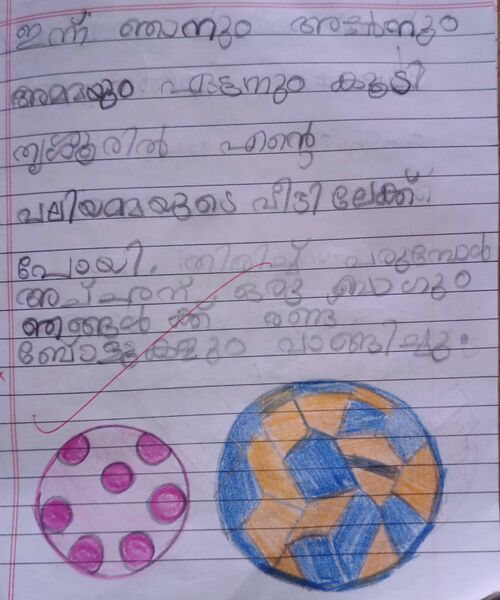 ഇന്ന് ഞാനും അമ്മനും
അമ്മയും ഏട്ടനും കൂടി
തൃശ്ശൂരിൽ എന്റെ
വലിയമ്മയുടെ വീട്ടിലേക്ക്
പോയി. തിരിച്ച് വരുമ്പോൾ
അപ്പുവിന് ഒരു ബാഗും
ഞങ്ങൾക്ക് രണ്ടു
ബോളുകളും വാങ്ങിച്ചു.